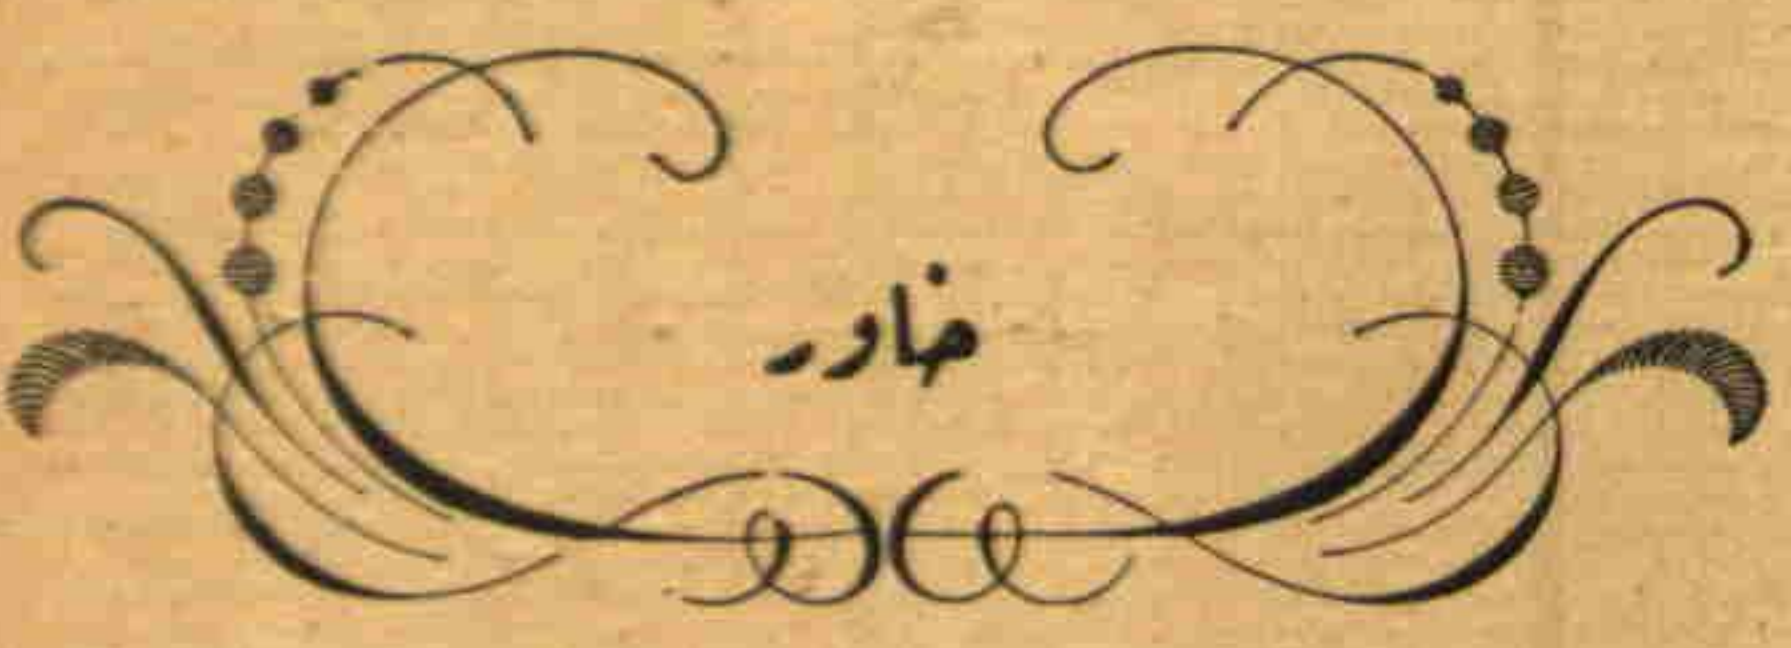 خاور